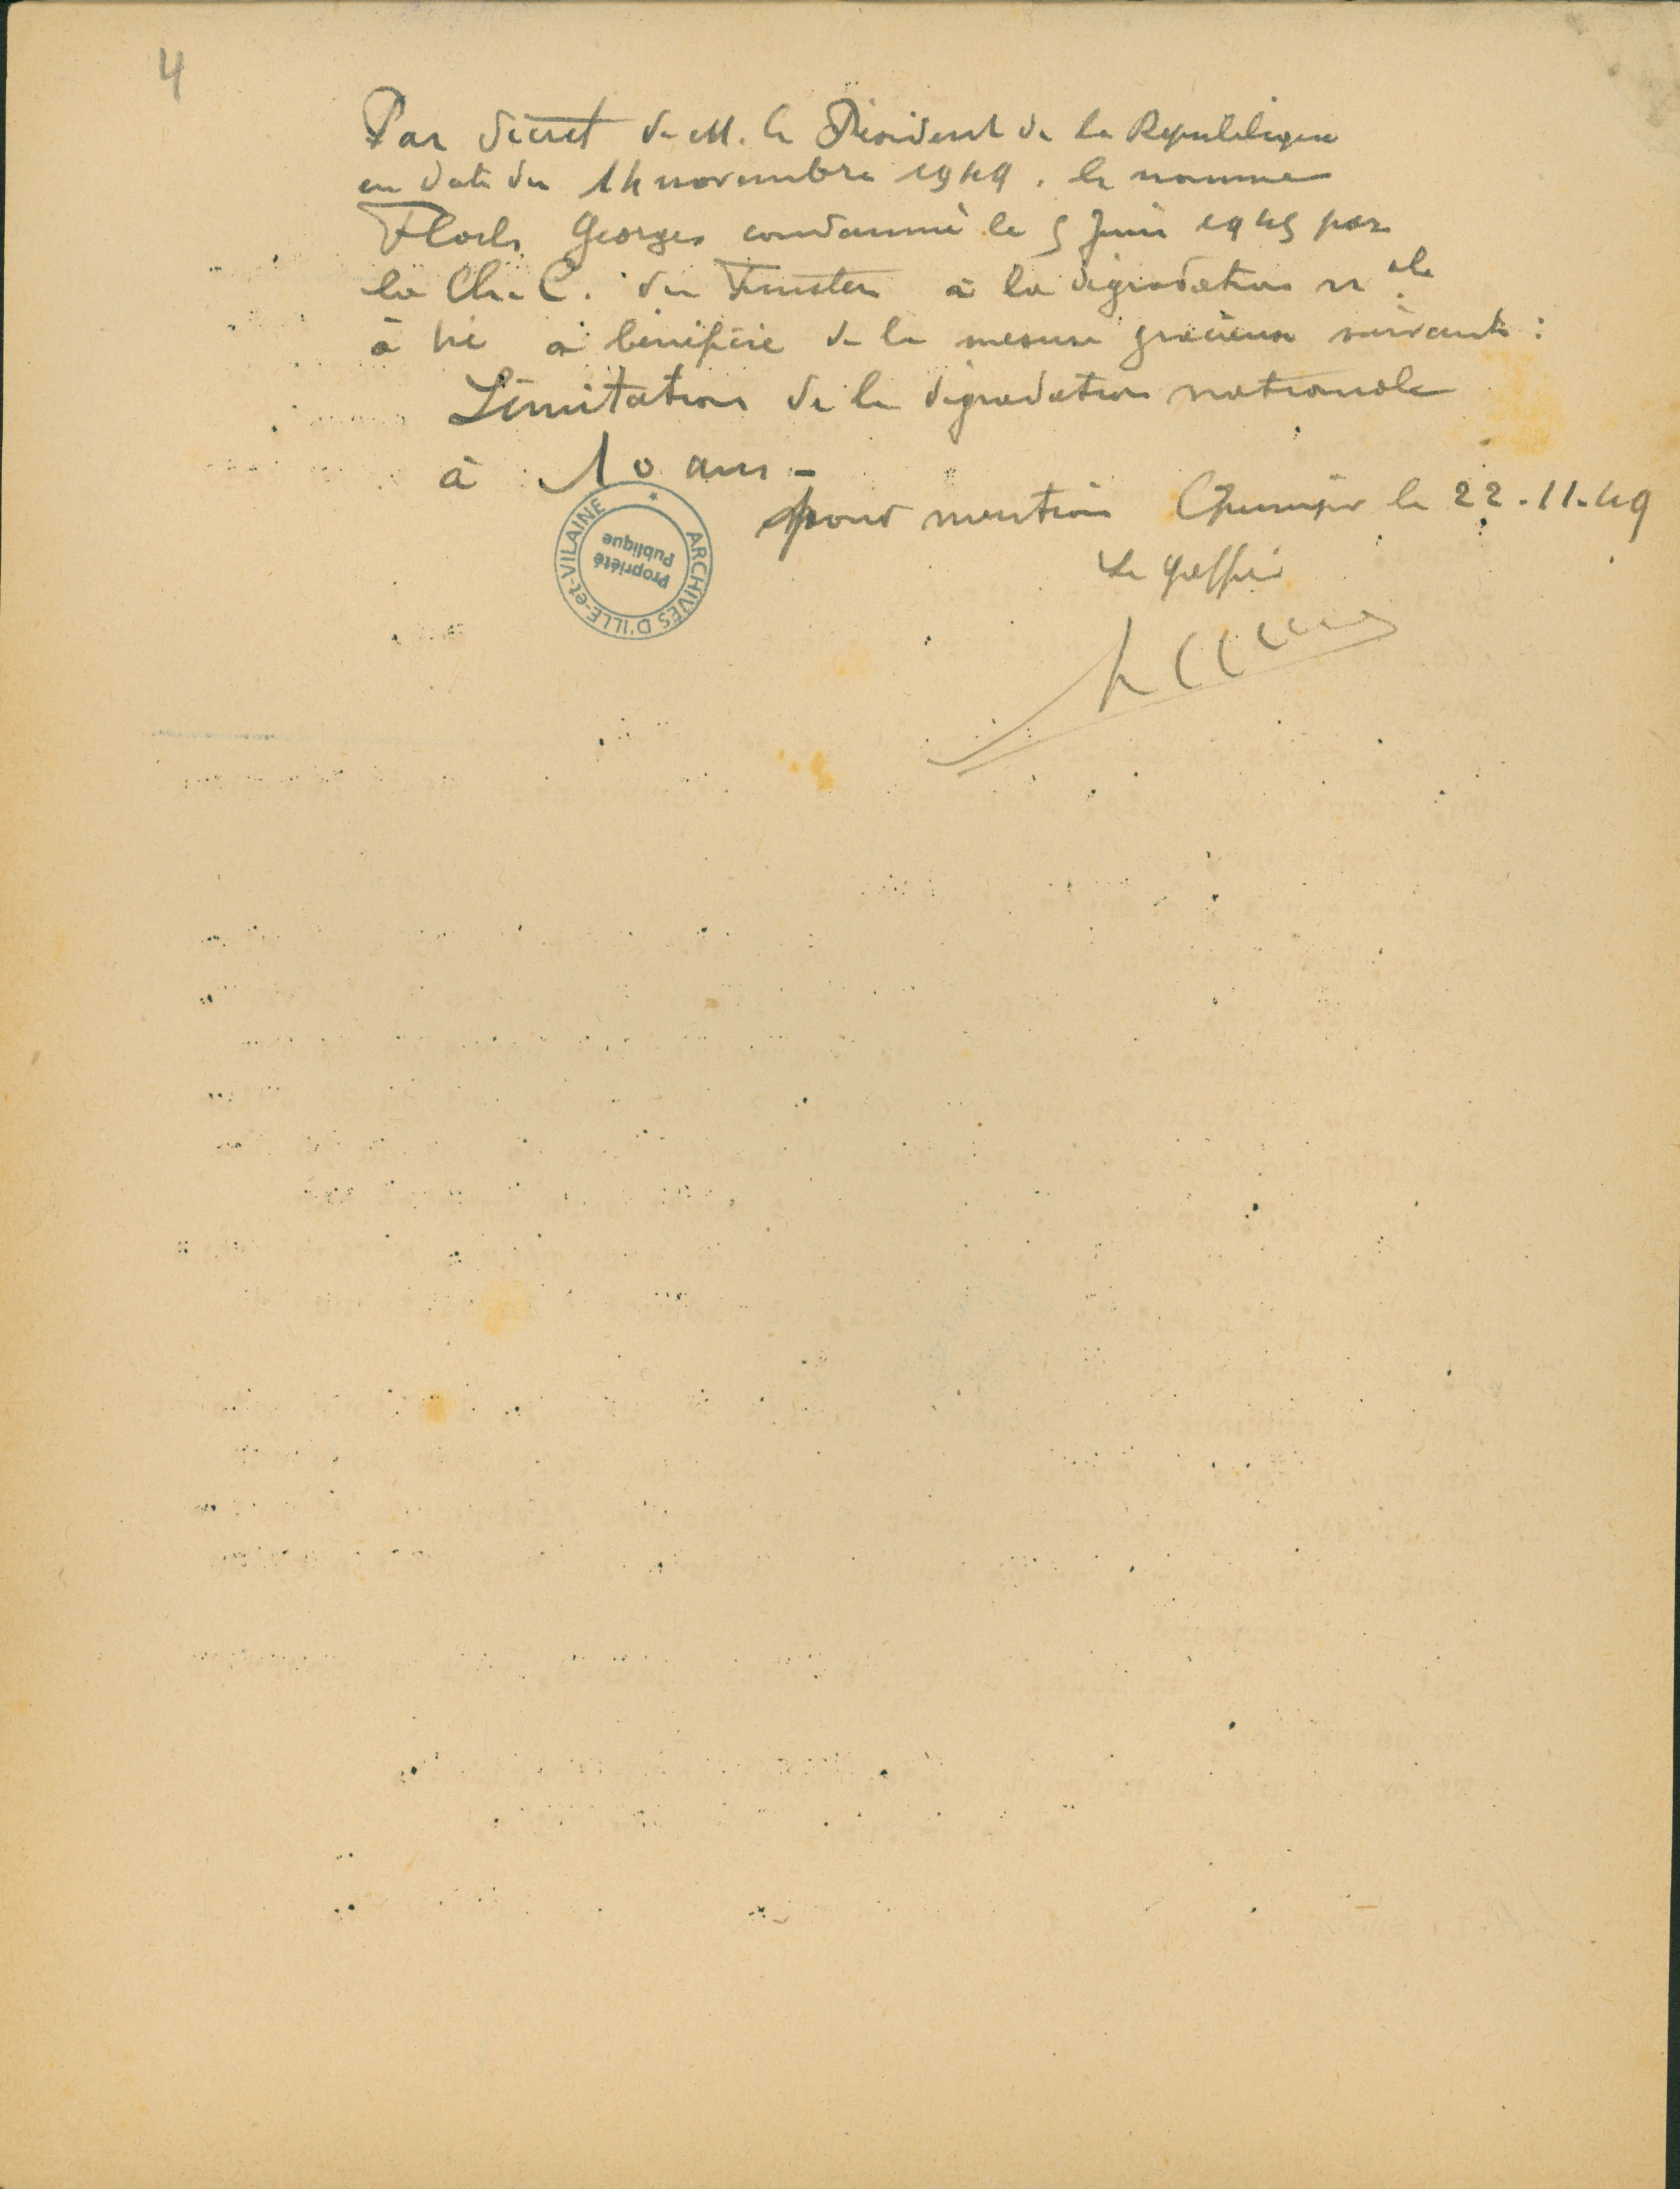 4
Par décret de M. le Président de la République
en date du 14 novembre 1949. le nommé
Floch Georges condamné le 5 Juin 1945 par
la Ch. C. du Finistère à la dégradation nale
à vie a bénéficié de la mesure gracieuse suivante :
Limitation de la dégradation nationale
à 10 ans -
pour mention Quimper le 22-11-49
Le Greffier
ARCHIVES D'ILLE-et-VILAINE
Propriété
Publique